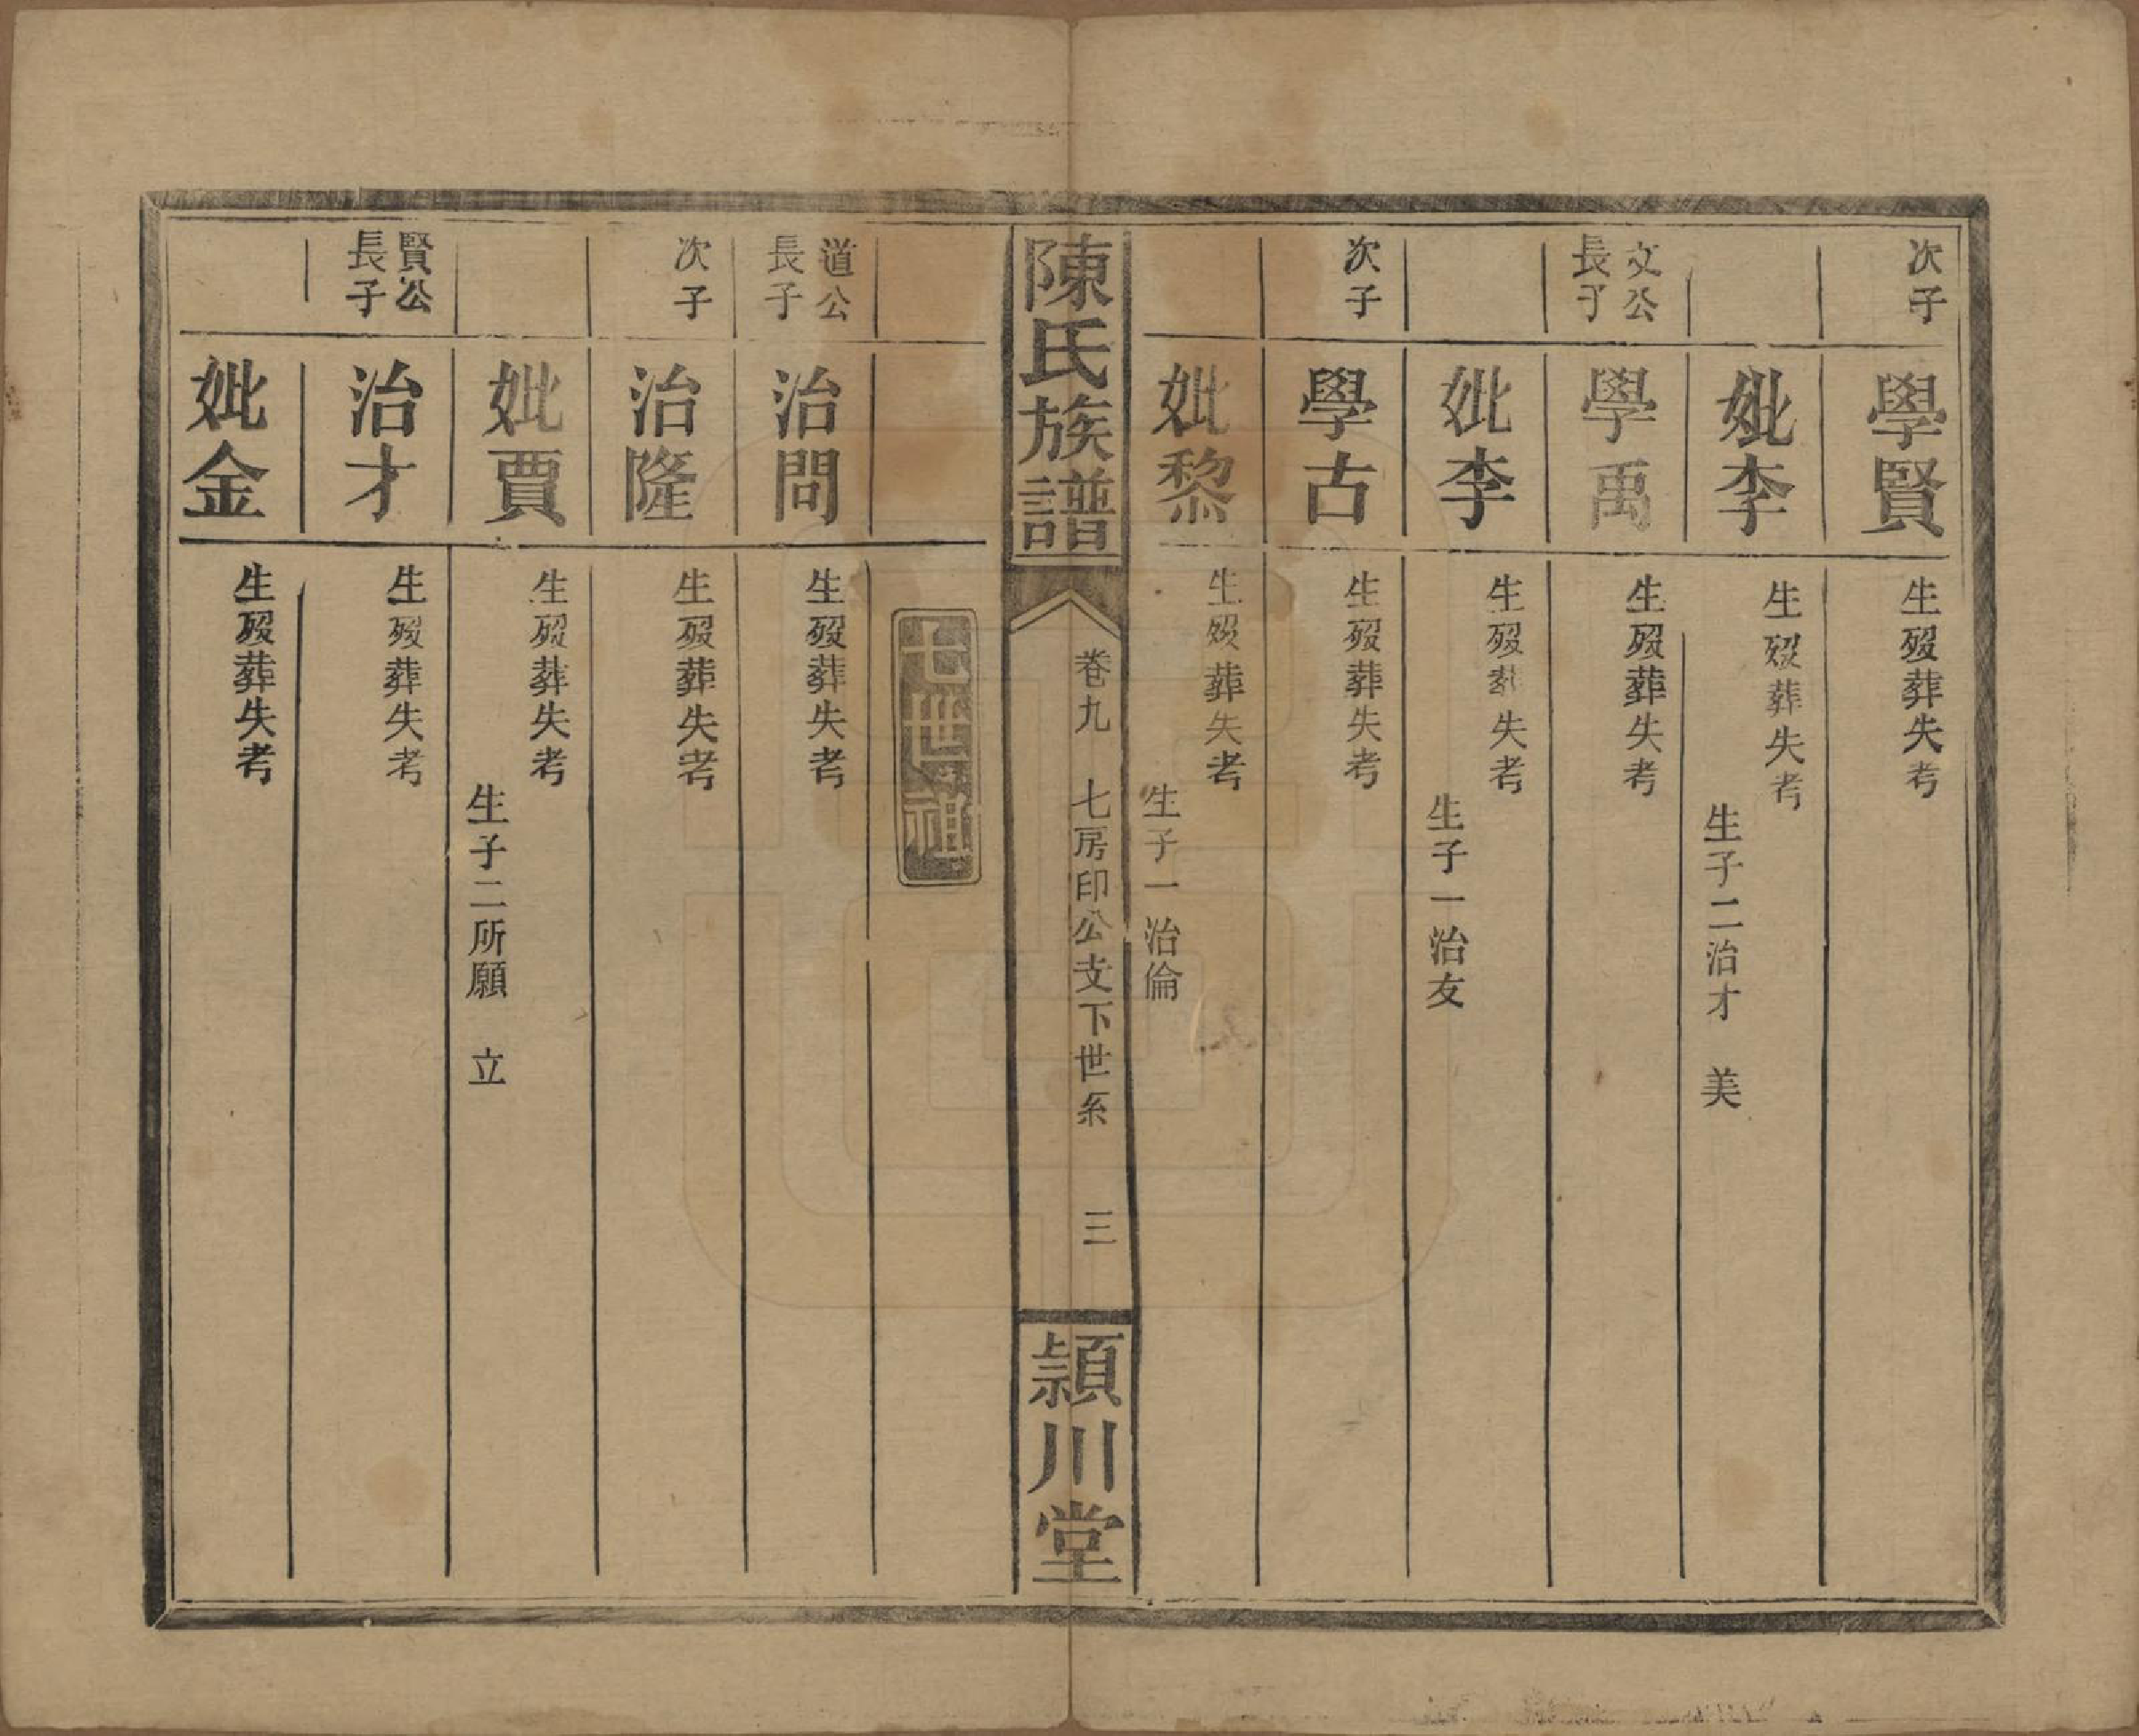 次子
學賢
生歿葬失考
妣李
生歿葬失考
生子二治才　美
文公
長子
學禹
生歿葬失考
妣李
生歿葬失考
生子一治友
次子
學古
生歿葬失考
妣黎
生歿葬失考
生子一治倫
陳氏族譜
卷九　七房印公支下世系　三
潁川堂
七世祖
道公
長子
治問
生歿葬失考
次子
治隆
生歿葬失考
妣賈
生歿葬失考
生子二所願　立
賢公
長子
治才
生歿葬失考
妣金
生歿葬失考